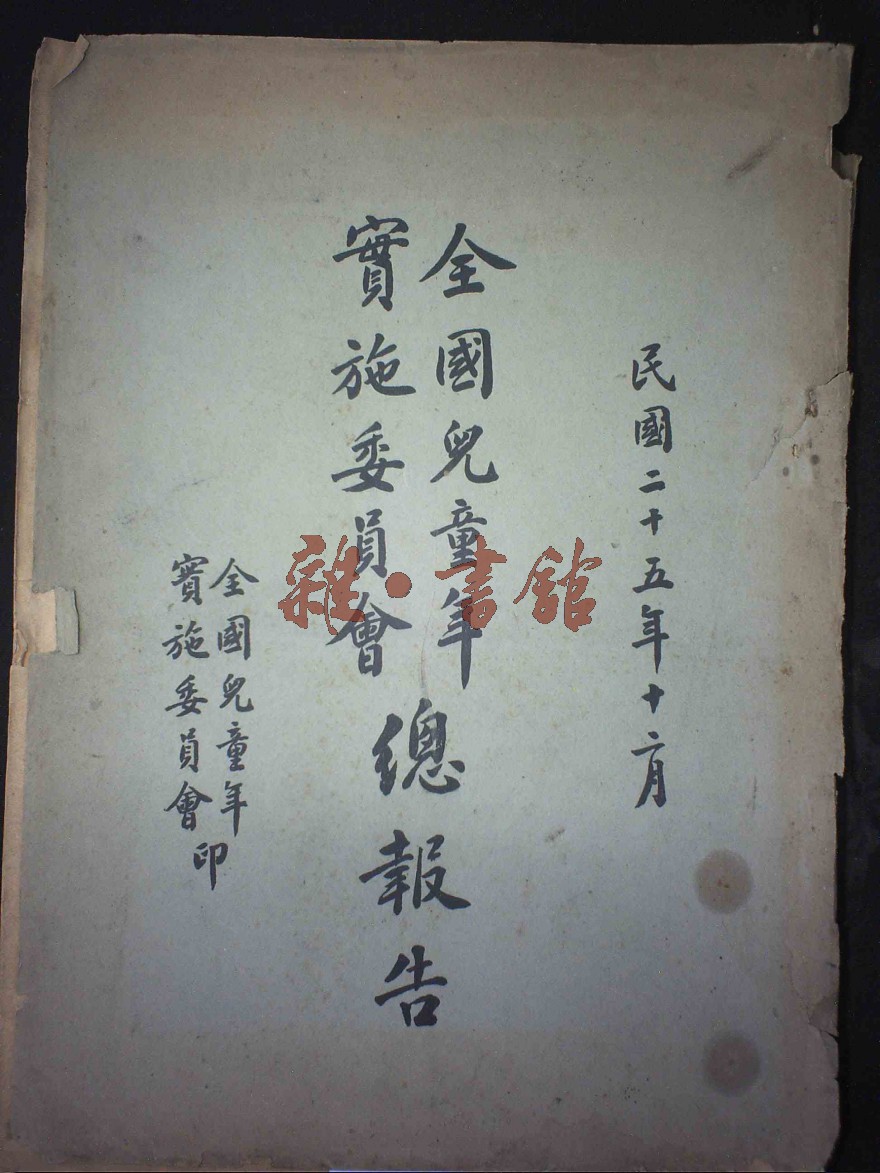 民國二十五年十二月
全國兒童年
實施委員會
總報告
全國兒童年
實施委員會
印
雜·書館